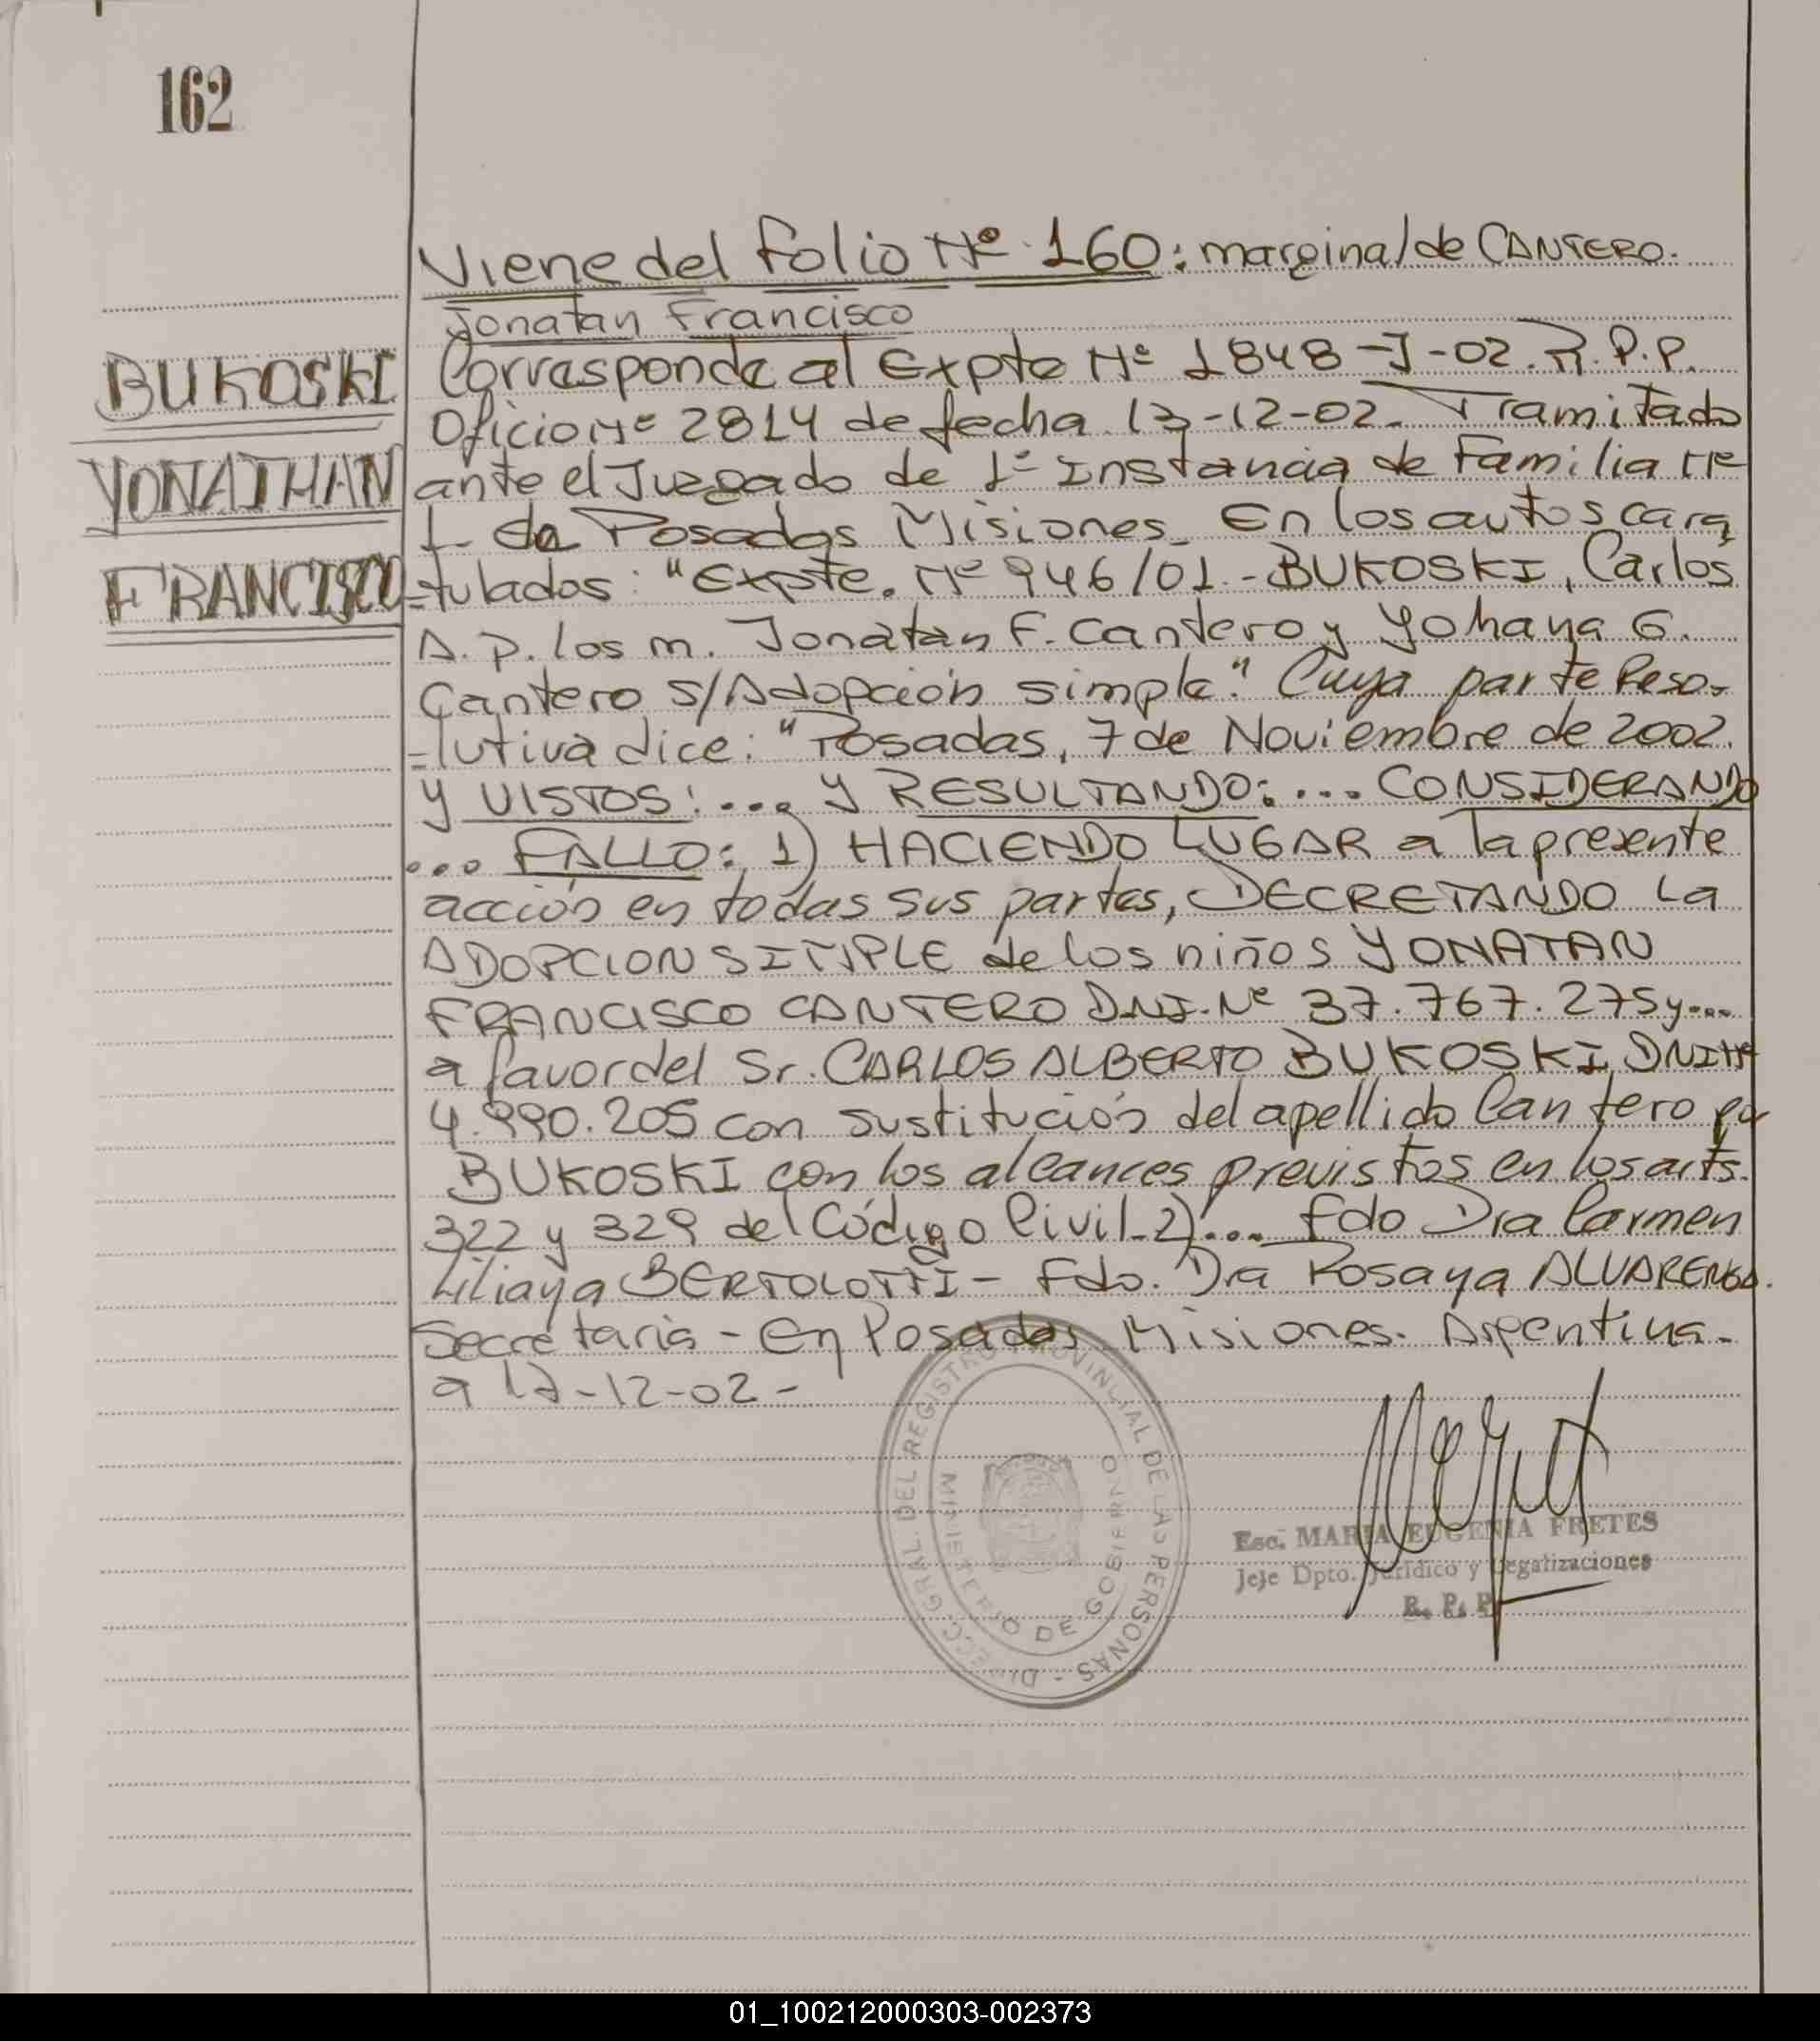 162
Viene del folio Nº 160: marginal de CANTERO.
Jonatan Francisco
BUKOSKI
YONATHAN
FRANCISCO
Corresponde al Expte Nº 1848-J-02. R.P.P.
Oficio Nº 2814 de fecha 13-12-02. Tramitado
ante el Juzgado de 1º Instancia de Familia Nº
1 de Posadas Misiones. En los autos cara
-tulados: "Expte. Nº 946/01 - BUKOSKI, Carlos
A. P. los m. Jonatan F. Cantero y Yohana G.
Cantero s/Adopción simple." Cuya parte Reso-
-lutiva dice: "Posadas, 7 de Noviembre de 2002.
Y VISTOS: .... Y RESULTANDO: ... CONSIDERANDO
... FALLO: 1) HACIENDO LUGAR a la presente
acción en todas sus partes, DECRETANDO La
ADOPCION SIMPLE de los niños YONATAN
FRANCISCO CANTERO D.N.I. Nº 37.767.275 y....
a favor del Sr. CARLOS ALBERTO BUKOSKI, DNI Nº
4.990.205 con sustitución del apellido Cantero por
BUKOSKI con los alcances previstos en los arts.
322 y 329 del Código Civil. 2).... Fdo Dra Carmen
Liliana BERTOLOTTI - Fdo. Dra Rosana ALVARENGA.
Secretaria - En Posadas Misiones. Argentina.
a 17-12-02 -
DIRECC. GRAL. DEL REGISTRO PROVINCIAL DE LAS PERSONAS -
MINISTERIO DE GOBIERNO
Esc. MARIA EUGENIA FRETES
Jefe Dpto. Jurídico y Legalizaciones
R. P. P.
01_100212000303-002373